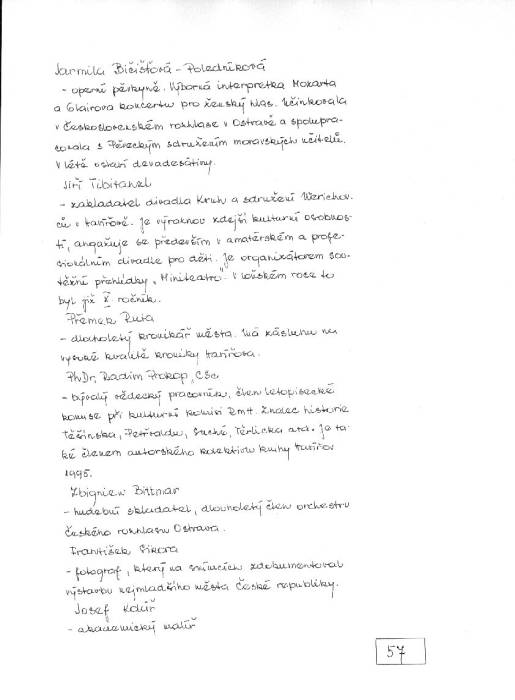 Jarmila Bičišťová - Poledníková
- operní pěvkyně. Výborná interpretka Mozarta
a Glairova koncertu pro ženský hlas. Účinkovala
v Československém rozhlase v Ostravě a spolupra-
covala s Pěveckým sdružením moravských učitelů.
V létě oslaví devadesátiny.
Jiří Tibitanzl
- zakladatel divadla Kruh a sdružení Werichov-
ců v Havířově. Je výraznou zdejší kulturní osobnos-
tí, angažuje se především v amatérském a profe-
sionálním divadle pro děti. Je organizátorem sou-
těžní přehlídky „Miniteatro". V loňském roce to
byl již X. ročník.
Přemek Ruta
- dlouholetý kronikář města. Má zásluhu na
vysoké kvalitě kroniky Havířova.
PhDr. Radim Prokop, CSc
- bývalý vědecký pracovník, člen letopisecké
komise při kulturní komisi RmH. Znalec historie
Těšínska, Petřvaldu, Suché, Těrlicka atd. Je ta-
ké členem autorského kolektivu knihy Havířov
1995.
Zbigniew Bittmar
- hudební skladatel, dlouholetý člen orchestru
českého rozhlasu Ostrava.
František Sikora
- fotograf, který na snímcích zdokumentoval
výstavbu nejmladšího města České republiky.
Josef Kolář
- akademický malíř
57